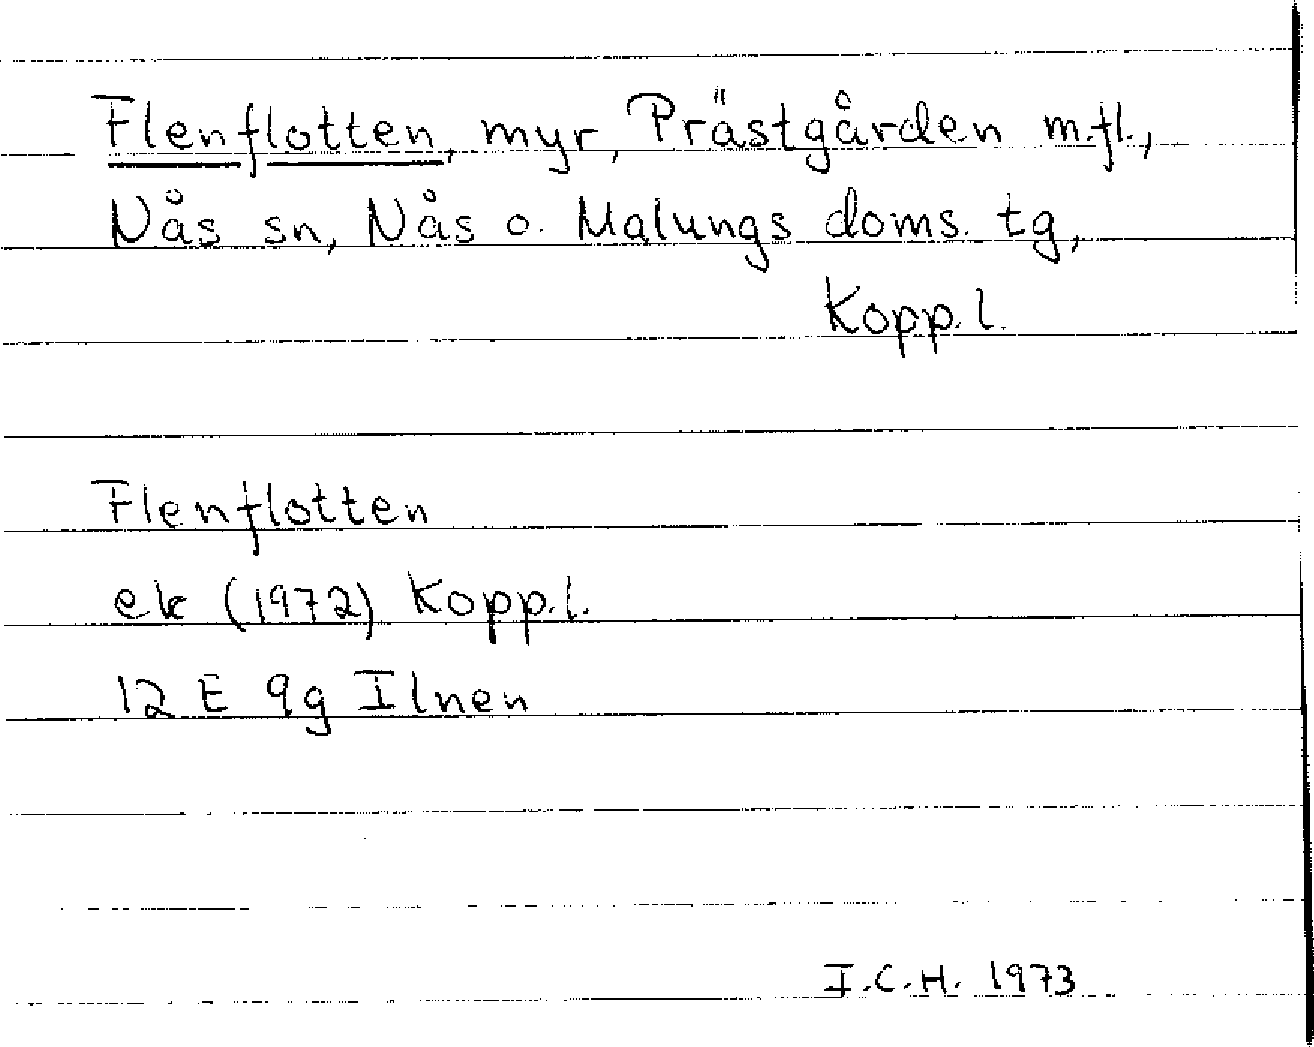 Flenflotten, myr, Prästgården m.fl.,
Nås sn, Nås o. Malungs doms. tg,
Kopp. l.
Flenflotten
ek (1972) Kopp. l.
12 E 9g Ilnen
I.C.H. 1973